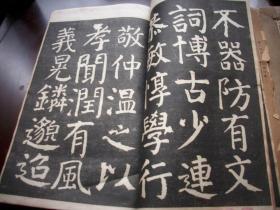 不器防有文
詞博古少連
恭敏惇學行
敬仲溫之以
孝聞潤有風
義晃鏻邈迨